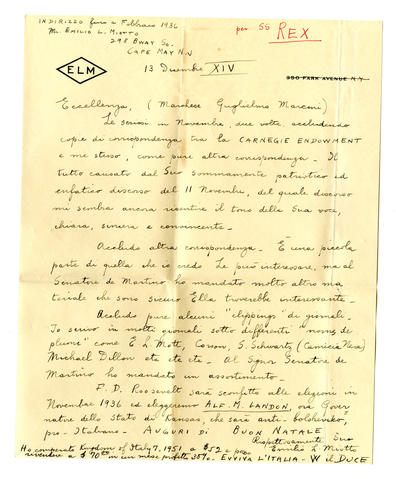 INDIRIZZO fino a Febbraio 1936
Mr. EMILIO L. MIOTTO
298 BWAY So.
CAPE MAY N.J
per SS REX
ELM
13 Dicembre XIV
350 PARK AVENUE N.Y.
Eccellenza, (Marchese Guglielmo Marconi)
Le scrissi in Novembre, due volte, accludendo
copie di corrispondenza tra la CARNEGIE ENDOWMENT
e me stesso, come pure altra corrispondenza - Il
tutto causato dal Suo sommamente patriotico ed
enfatico discorso del 11 Novembre, del quale discorso
mi sembra ancora risentire il tono della Sua voce,
chiara, sincera e convincente -
Accludo altra corrispondenza - È una piccola
parte di quella che io credo Le può interessare, ma al
Senatore de Martino ho mandato molto altro ma
teriale che sono sicuro Ella troverebbe interessante -
Accludo pure alcuni "clippings" di giornali -
Io scrivo in molti giornali sotto differenti "nomes de
plume" come E L Mott, S. Swartz (Camicia Nera)
Michael Dillon etc etc etc - Al Signor Senatore de
Martino ho mandato un assortimento -
F. D. Roosevelt sarà sconfitto alle elezioni in
Novembre 1936 ed eleggeremo ALF. M. LANDON, ora Gover
natore dello Stato di Kansas, che sarà anti-bolshevike,
pro-Italiano - AUGURI di BUON NATALE
Rispettosamente Suo
Emilio L Miotto
Ho comperato Kingdom of Italy 7, 1951 a $52 e posso
rivendere a $70 in un mese profitto 35% - EVVIVA L'ITALIA - W il DUCE